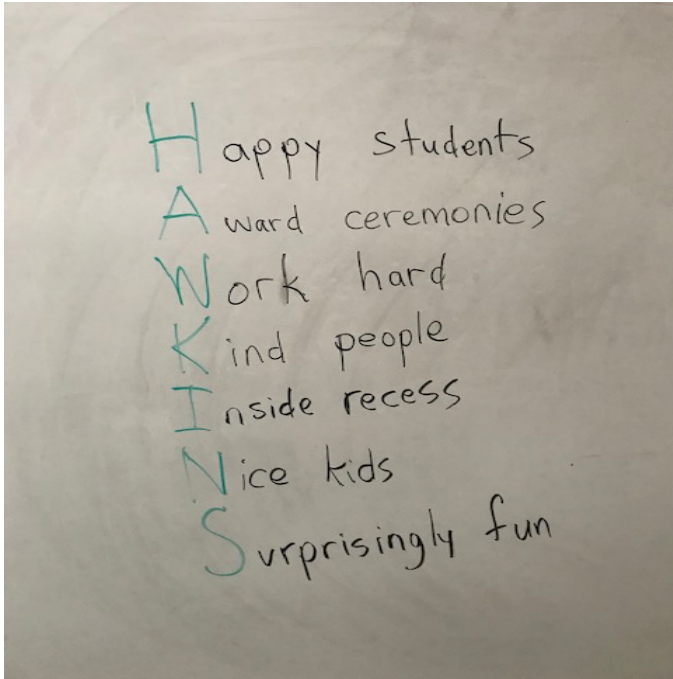 Happy students
Award ceremonies
Work hard
Kind people
Inside recess
Nice kids
Surprisingly fun